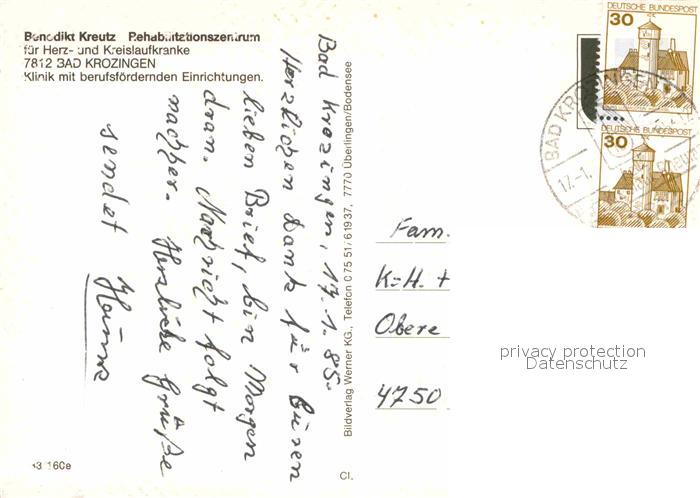 Benedikt Kreutz Rehabilitationszentrum
für Herz- und Kreislaufkranke
7812 BAD KROZINGEN
Klinik mit berufsfördernden Einrichtungen.
Bad Krozingen, 17.1.85.
Herzlichen Dank für Euren
lieben Brief, bin Morgen
dran. Nachricht folgt
nachher. Herzliche Grüße
sendet
Bildverlag Werner KG., Telefon 0 75 51/61937, 7770 Überlingen/Bodensee
DEUTSCHE BUNDESPOST
30
DEUTSCHE BUNDESPOST
30
BAD KROZINGEN
17.-1.
Fam.
K.-H. +
Obere
4750
privacy protection
Datenschutz
CI.